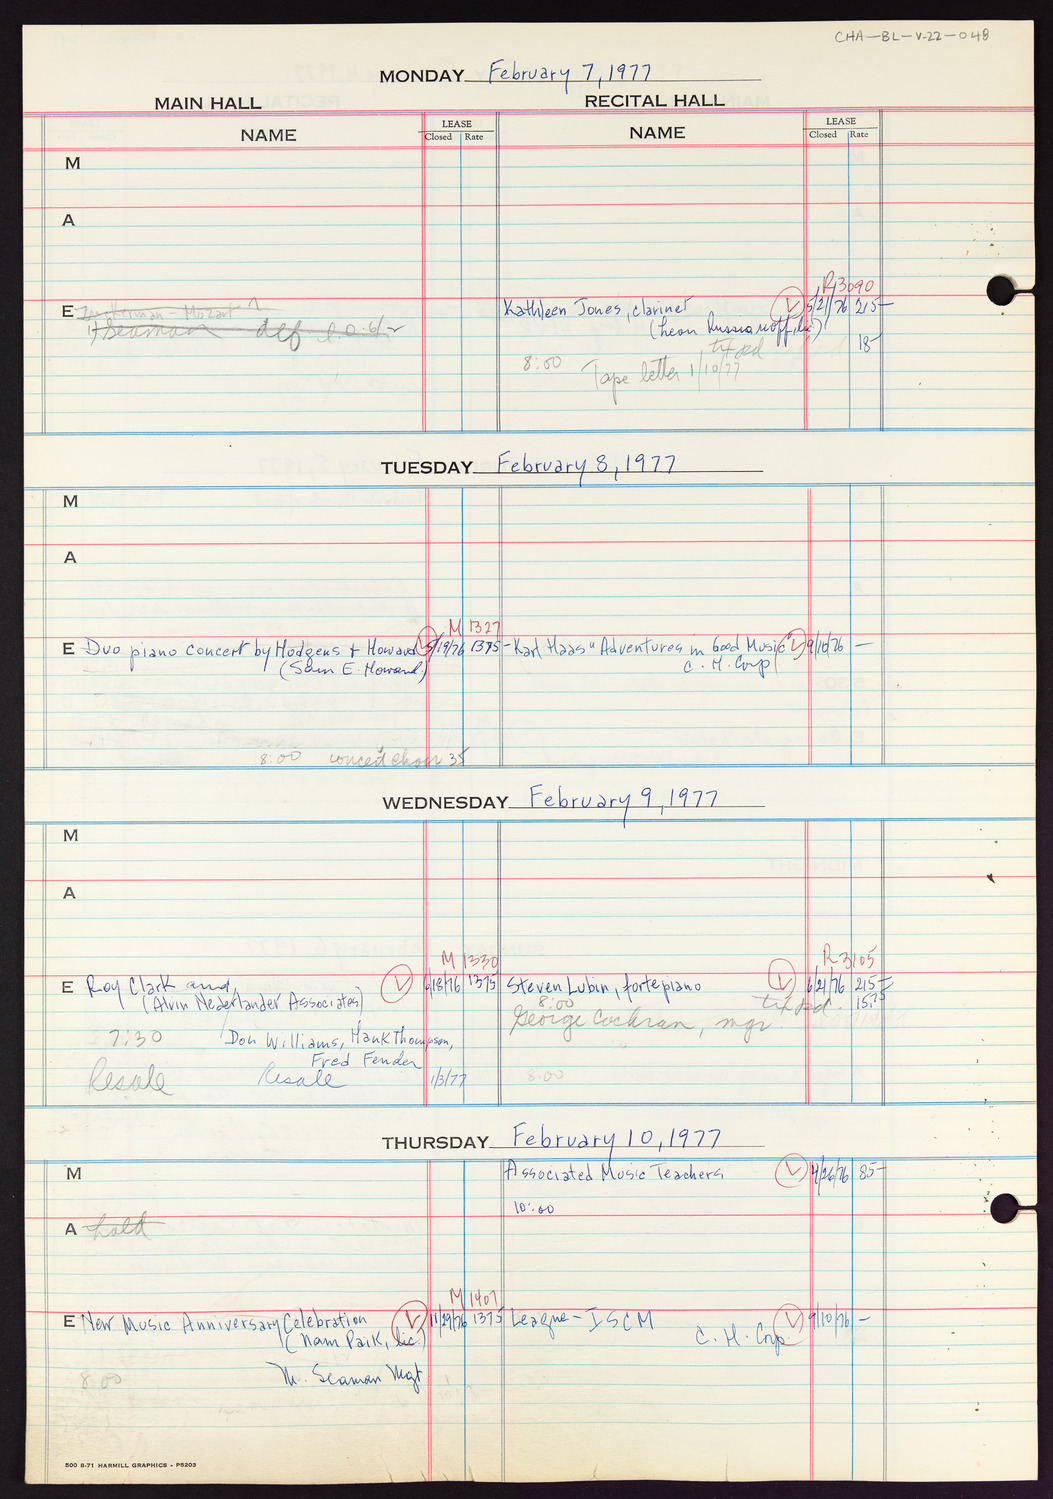 CHA-BL-V-22-048
MONDAY February 7, 1977
MAIN HALL RECITAL HALL
NAME LEASE Closed Rate NAME LEASE Closed Rate
M
A
R 3090
E Zukerman - Mozart Kathleen Jones, clarinet 5/21/76 215-
H Seaman def (Leon Russianoff, lic) 18-
8:00 Tape letter 1/10/77
TUESDAY February 8, 1977
M
A
M 1327
E Duo piano concert by Hodgens + Howard 5/19/76 1375- Karl Haas "Adventures in Good Music" 9/10/76 -
(Sam E. Howard) C. H. Corp
8:00 concert choir 35
WEDNESDAY February 9, 1977
M
A
M 1330 R 3105
E Roy Clark and 6/18/76 1375 Steven Lubin, fortepiano 6/21/76 215-
(Alvin Nederlander Associates) 8:00 15.75
George Cochran, mgr
7:30 Don Williams, Hank Thompson,
Fred Fender
Resale Resale 1/3/77 8:00
THURSDAY February 10, 1977
M Associated Music Teachers 4/26/76 85-
10:00
A hold
M 1407
E New Music Anniversary Celebration 11/29/76 1375 League - ISCM 9/10/76 -
(Nam Paik, lic) C. H. Corp.
8:00 N. Seaman Mgt
500 8-71 HARMILL GRAPHICS - P5203